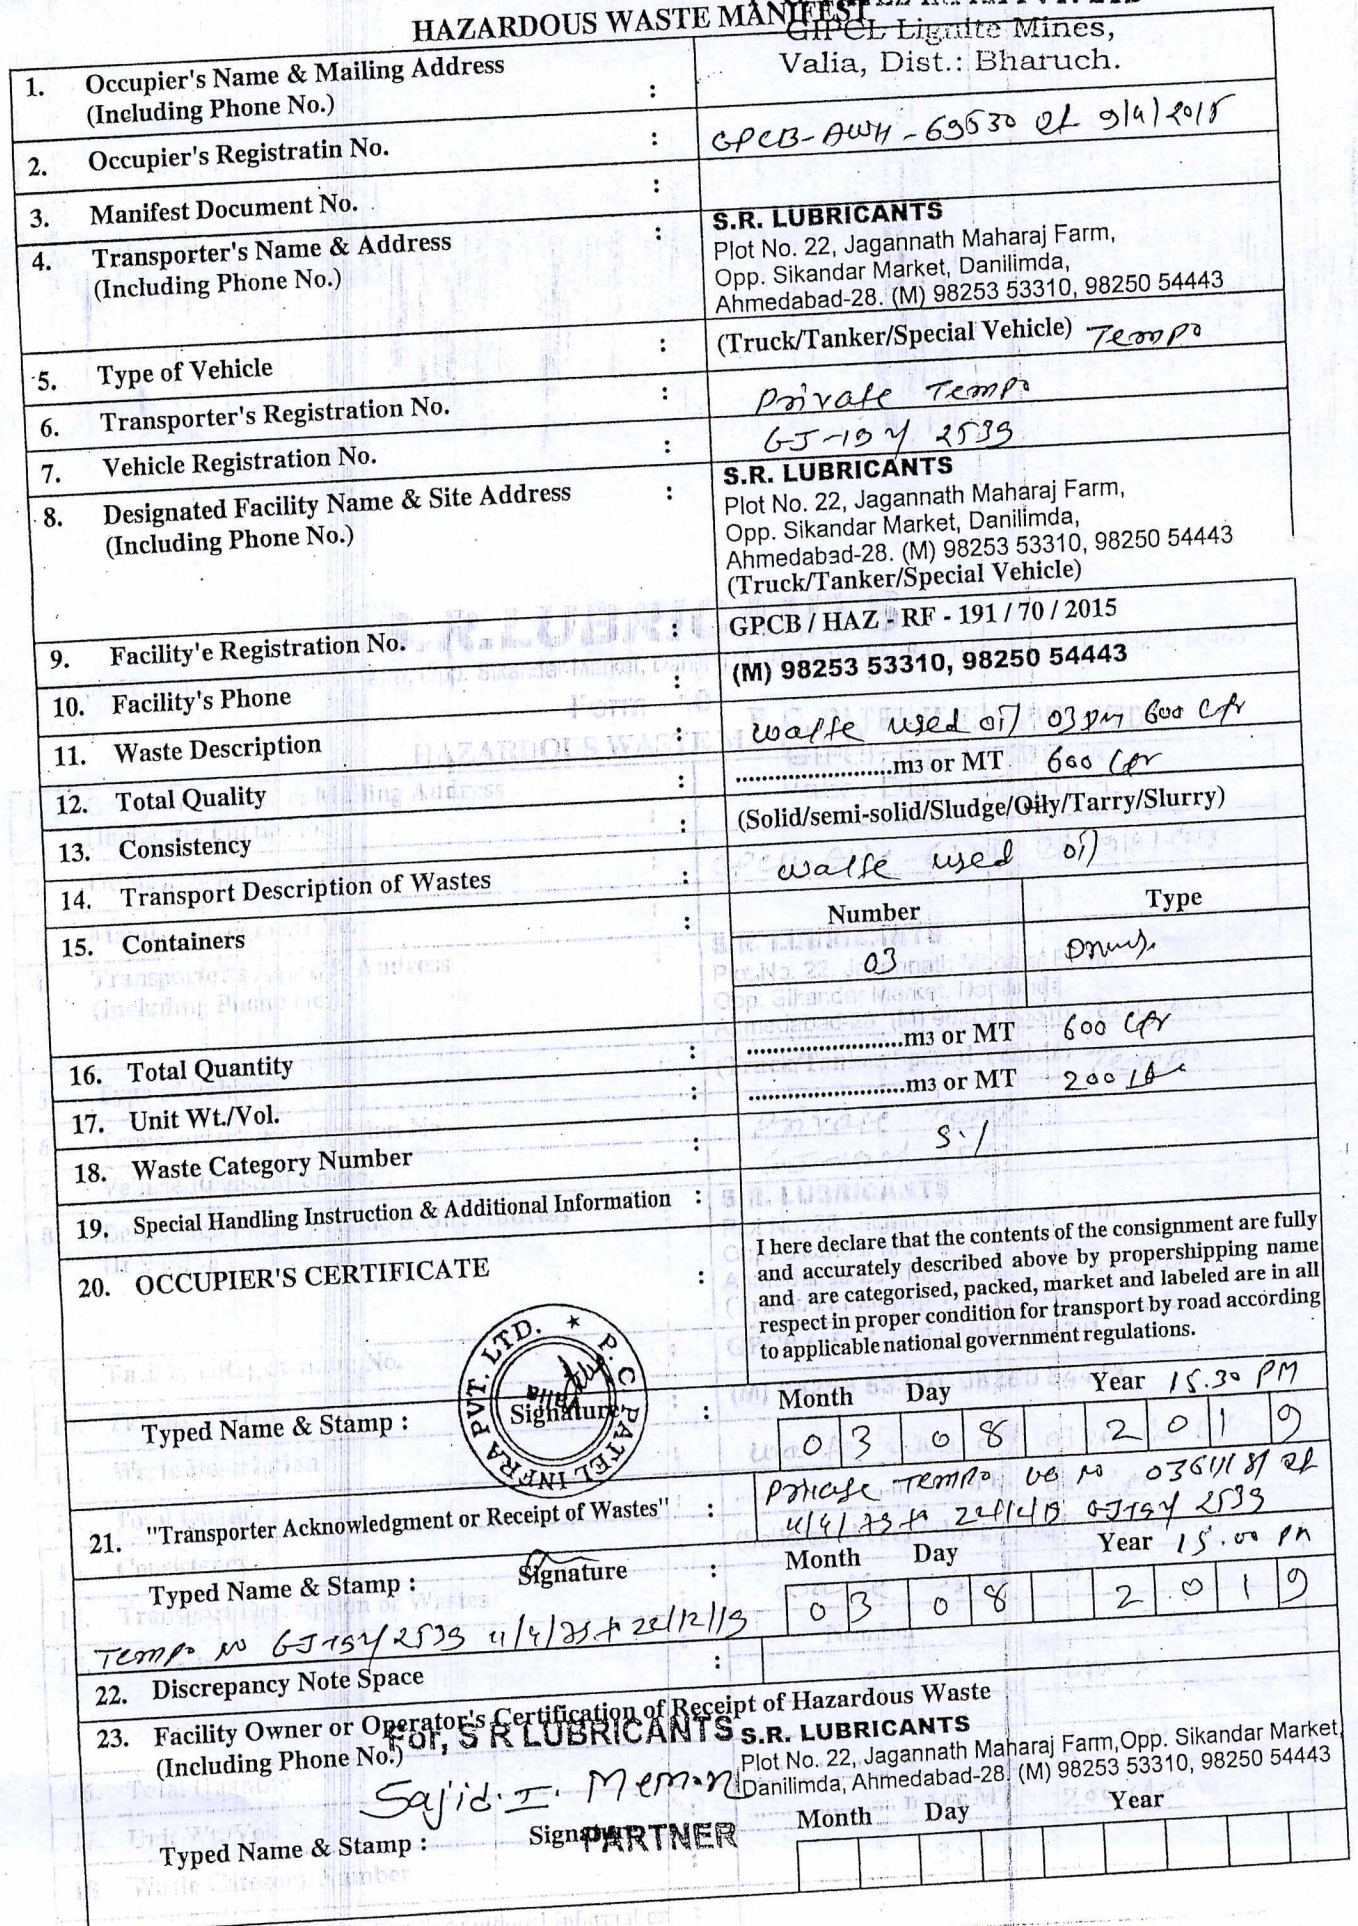 HAZARDOUS WASTE MANIFEST
1. Occupier's Name & Mailing Address
(Including Phone No.) :
GIPCL Lignite Mines,
Valia, Dist.: Bharuch.
2. Occupier's Registratin No. : GPCB-AWH-69530 9/4/2015
3. Manifest Document No. :
4. Transporter's Name & Address :
(Including Phone No.)
S.R. LUBRICANTS
Plot No. 22, Jagannath Maharaj Farm,
Opp. Sikandar Market, Danilimda,
Ahmedabad-28. (M) 98253 53310, 98250 54443
5. Type of Vehicle : (Truck/Tanker/Special Vehicle) Tempo
6. Transporter's Registration No. : Private Tempo
7. Vehicle Registration No. : GJ-19Y 2539
8. Designated Facility Name & Site Address :
(Including Phone No.)
S.R. LUBRICANTS
Plot No. 22, Jagannath Maharaj Farm,
Opp. Sikandar Market, Danilimda,
Ahmedabad-28. (M) 98253 53310, 98250 54443
(Truck/Tanker/Special Vehicle)
9. Facility'e Registration No. : GPCB / HAZ - RF - 191 / 70 / 2015
10. Facility's Phone : (M) 98253 53310, 98250 54443
11. Waste Description : waste used oil 03 600
12. Total Quality : ........................m3 or MT 600
13. Consistency : (Solid/semi-solid/Sludge/Oily/Tarry/Slurry)
14. Transport Description of Wastes : waste used oil
15. Containers : Number Type
03 Drums.
16. Total Quantity : ........................m3 or MT 600
17. Unit Wt./Vol. : ........................m3 or MT 200
18. Waste Category Number : 5.1
19. Special Handling Instruction & Additional Information :
20. OCCUPIER'S CERTIFICATE :
I here declare that the contents of the consignment are fully
and accurately described above by propershipping name
and are categorised, packed, market and labeled are in all
respect in proper condition for transport by road according
to applicable national government regulations.
P. C. PATEL INFRA PVT. LTD. ★
Valia
Month Day Year 15.30 PM
Typed Name & Stamp : Signature : 03 08 2019
21. "Transporter Acknowledgment or Receipt of Wastes" :
Private Tempo
GJ19Y 2539
Month Day Year 15.00 PM
Typed Name & Stamp : Signature : 03 08 2019
Tempo No GJ19Y 2539
22. Discrepancy Note Space :
23. Facility Owner or Operator's Certification of Receipt of Hazardous Waste
(Including Phone No.)
For, S R LUBRICANTS
S.R. LUBRICANTS
Plot No. 22, Jagannath Maharaj Farm,Opp. Sikandar Market,
Danilimda, Ahmedabad-28. (M) 98253 53310, 98250 54443
Sajid.I.Memon
Month Day Year
Typed Name & Stamp : Signature
PARTNER